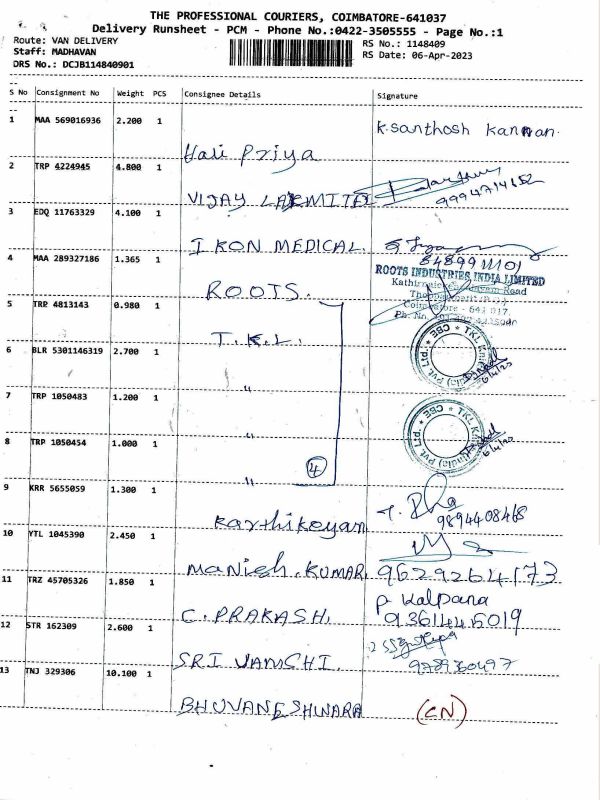 THE PROFESSIONAL COURIERS, COIMBATORE-641037
Delivery Runsheet - PCM - Phone No.:0422-3505555 - Page No.:1
Route: VAN DELIVERY
RS No.: 1148409
Staff: MADHAVAN
RS Date: 06-Apr-2023
DRS No.: DCJB114840901
S No Consignment No Weight PCS Consignee Details Signature
1 MAA 569016936 2.200 1 K. Santhosh Kannan.
Hari Priya
2 TRP 4224945 4.800 1
VIJAY LAXMITEX 9994714652
3 EDQ 11763329 4.100 1
IKON MEDICAL.
4 MAA 289327186 1.365 1
ROOTS INDUSTRIES INDIA LIMITED
ROOTS.
5 TRP 4813143 0.980 1
Coimbatore - 641 017
T.K.L.
6 BLR 5301146319 2.700 1
TKL Knit (India) Pvt. Ltd. * CBE *
"
7 TRP 1050483 1.200 1
"
8 TRP 1050454 1.000 1
TKL Knit (India) Pvt. Ltd. * CBE *
4
"
9 KRR 5655059 1.300 1
Karthikeyan 9894408468
10 YTL 1045390 2.450 1
Manish. KUMAR. 9629264173
11 TRZ 45705326 1.850 1 P Kalpana
C. PRAKASH. 9361445019
12 STR 162309 2.600 1
SRI VAMSHI. 9789360497
13 TNJ 329306 10.100 1
BHUVANESHWARA (CN)